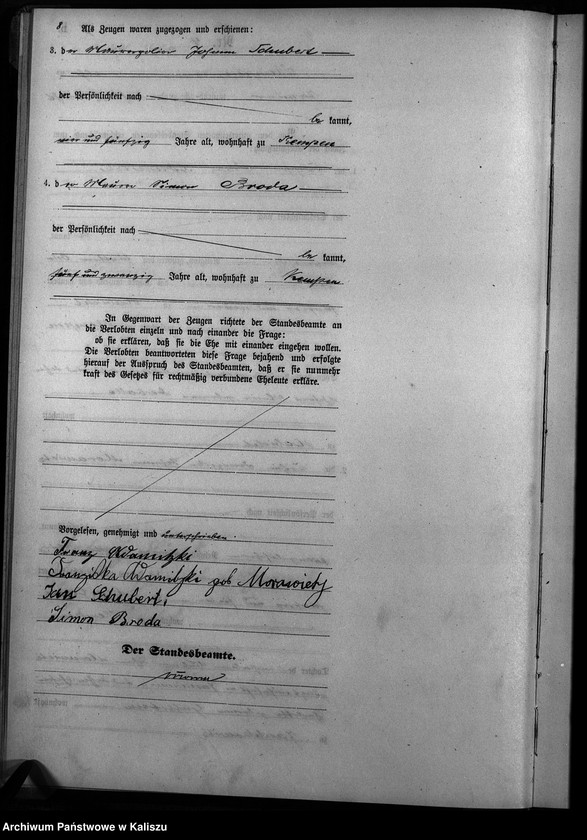 8.
Als Zeugen waren zugezogen und erschienen:
3. der Maurerpolier Johann Schubert
der Persönlichkeit nach
be kannt,
vier und fünfzig Jahre alt, wohnhaft zu Kempen
4. der Maurer Simon Broda
der Persönlichkeit nach
be kannt,
fünf und zwanzig Jahre alt, wohnhaft zu Kempen
In Gegenwart der Zeugen richtete der Standesbeamte an
die Verlobten einzeln und nach einander die Frage:
ob sie erklären, daß sie die Ehe mit einander eingehen wollen.
Die Verlobten beantworteten diese Frage bejahend und erfolgte
hierauf der Ausspruch des Standesbeamten, daß er sie nunmehr
kraft des Gesetzes für rechtmäßig verbundene Eheleute erkläre.
Vorgelesen, genehmigt und unterschrieben.
Franz Adamitzki
Franziska Adamitzki geb Morawietz
Jan Schubert,
Simon Broda
Der Standesbeamte.
Archiwum Państwowe w Kaliszu